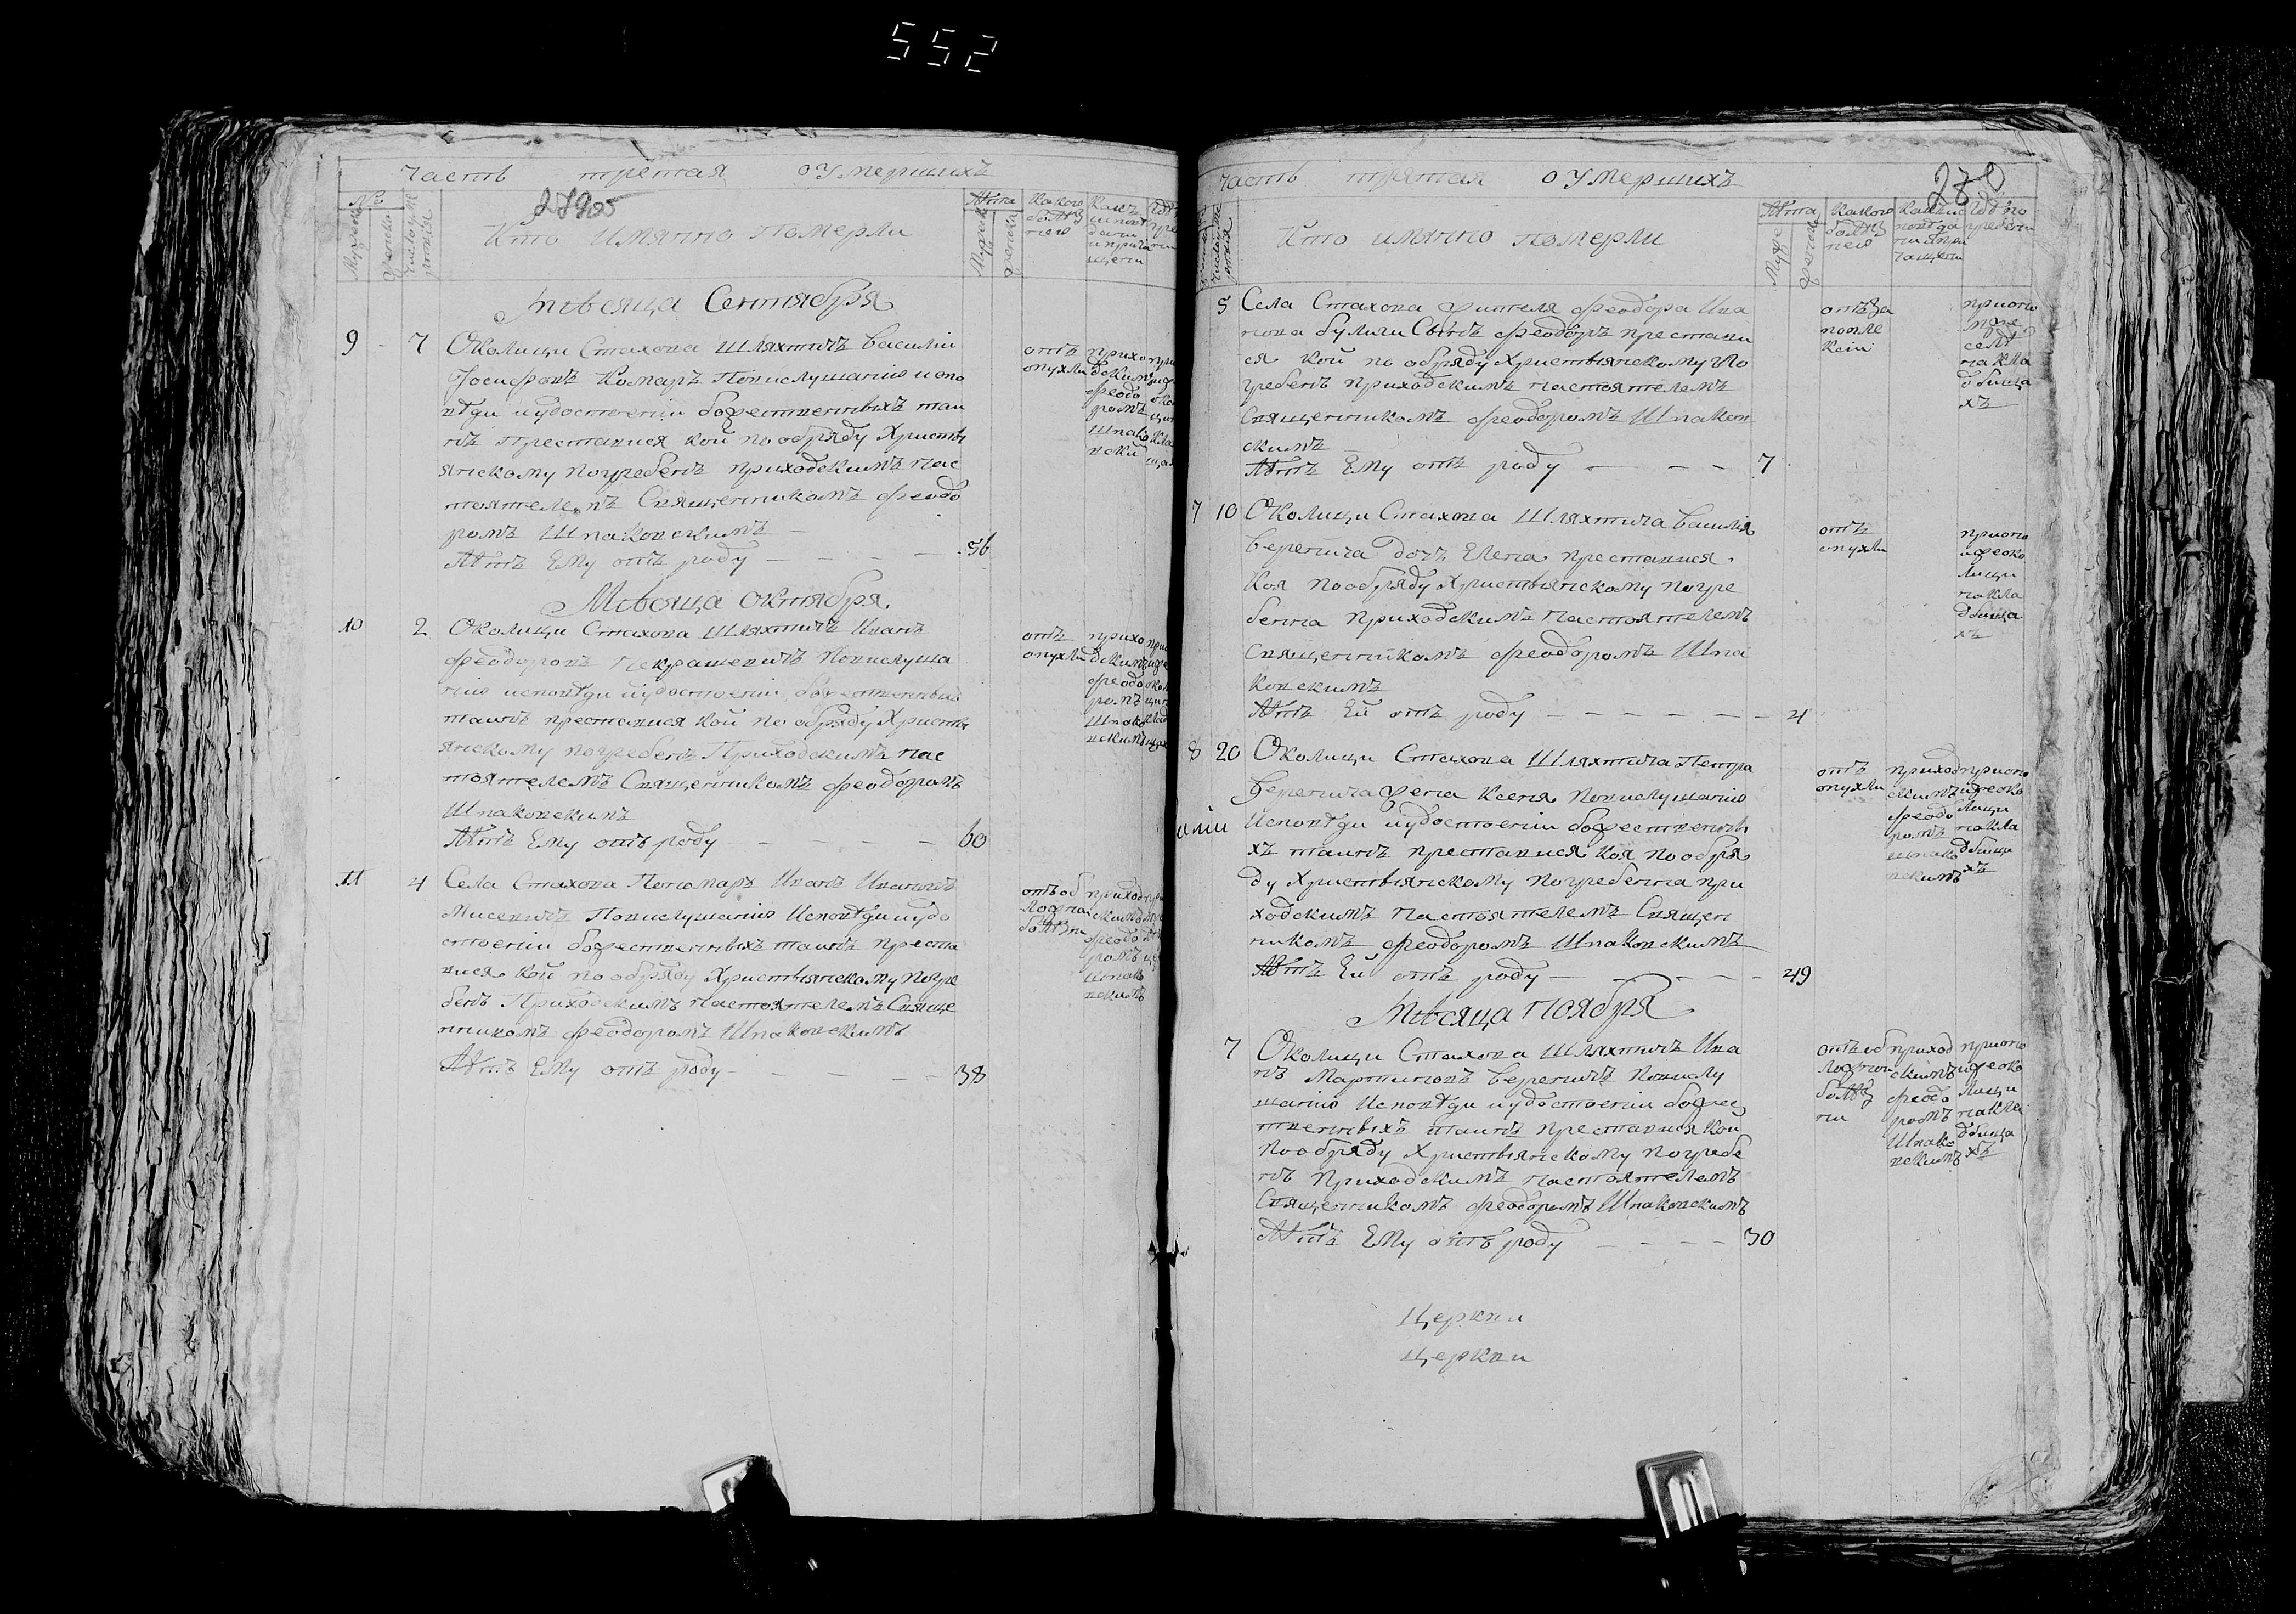 552
Часть третая о Умершихъ
№
27905
Лѣта
Какою
болѣз
нею
Кто имянно померли
Мѣсяца Сентября
9 - 7 Околицы Стахова Шляхтичъ Василій
Іосифовъ Комаръ Повислушанію испо
вѣди иудостоеніи божественныхъ таи
нъ преставися кой по обряду Христи
янскому погребенъ приходскимъ нас
тоятелемъ Священникомъ Феодо
ромъ Шпаковскимъ
Лѣтъ Ему отъ роду - - - - 56
отъ
опухли
прихо
дскимъ
Феодо
ромъ
Шпако
вски
Мѣсяца Октября
10 2 Околицы Стахова Шляхтичъ Иванъ
Феодоровъ Некрашевичъ Повислуша
нію исповѣди иудостоеніи божественныхъ
таинъ преставися кой по обряду Христи
янскому погребенъ Приходскимъ нас
тоятелемъ Священникомъ Феодоромъ
Шпаковскимъ
Лѣтъ Ему отъ роду - - - - 60
отъ
опухли
прихо
дскимъ
Феодо
ромъ
Шпако
вскимъ
11 4 Села Стахова Пономарь Иванъ Ивановъ
Мисевичъ Повислушанію Исповѣди иудо
стоеніи божественныхъ таинъ преста
вися кой по обряду Християнскому погре
бенъ Приходскимъ настоятелемъ Свяще
нникомъ Феодоромъ Шпаковскимъ
Лѣтъ Ему отъ роду - - - - 38
отъ об
ложна
болѣзни
приход
скимъ
Феодо
ромъ
Шпако
вскимъ
Часть третая о Умершихъ
280
Лѣта
Какою
болѣз
нею
Кто имянно померли
5 Села Стахова жителя Феодора Ива
нова Булыги Сынъ Феодоръ престави
ся кой по обряду Християнскому по
гребенъ приходскимъ настоятелемъ
Священникомъ Феодоромъ Шпаков
скимъ
Лѣтъ Ему отъ роду - - - 7
при
селѣ
на кла
дбища
хъ
7 10 Околицы Стахова Шляхтича Василія
Веренича дочъ Елена преставися
Коя по обряду Християнскому погре
бенна приходскимъ настоятелемъ
Священникомъ Феодоромъ Шпа
ковскимъ
Лѣтъ Ей отъ роду - - - - - - 4
отъ
опухли
прионо
йже око
лици
на кла
дбища
хъ
8 20 Околицы Стахова Шляхтича Петра
Веренича жена Ксеня Повислушанію
Исповѣди иудостоеніи божественны
хъ таинъ преставися коя по обря
ду Християнскому погребенна при
ходскимъ настоятелемъ Священ
никомъ Феодоромъ Шпаковскимъ
Лѣтъ Ей отъ роду - - - - 49
отъ
опухли
приход
скимъ
Феодо
ромъ
Шпако
вскимъ
прионо
йже око
лици
на кла
дбища
хъ
Мѣсяца Ноября
7 Околицы Стахова Шляхтичъ Ива
нъ Мартиновъ Вереничъ Повислу
шанію Исповѣди иудостоеніи божес
твенныхъ таинъ преставися кой
по обряду Християнскому погребе
нъ приходскимъ настоятелемъ
Священникомъ Феодоромъ Шпаковскимъ
Лѣтъ Ему отъ роду - - - - 30
отъ об
ложной
болѣз
ни
приход
скимъ
Феодо
ромъ
Шпако
вскимъ
прионо
йже око
лици
на кла
дбища
хъ
Церкви
Церкви